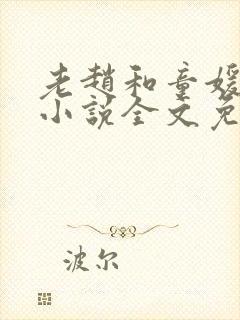 老趙和童媛
小說全文免
波尔